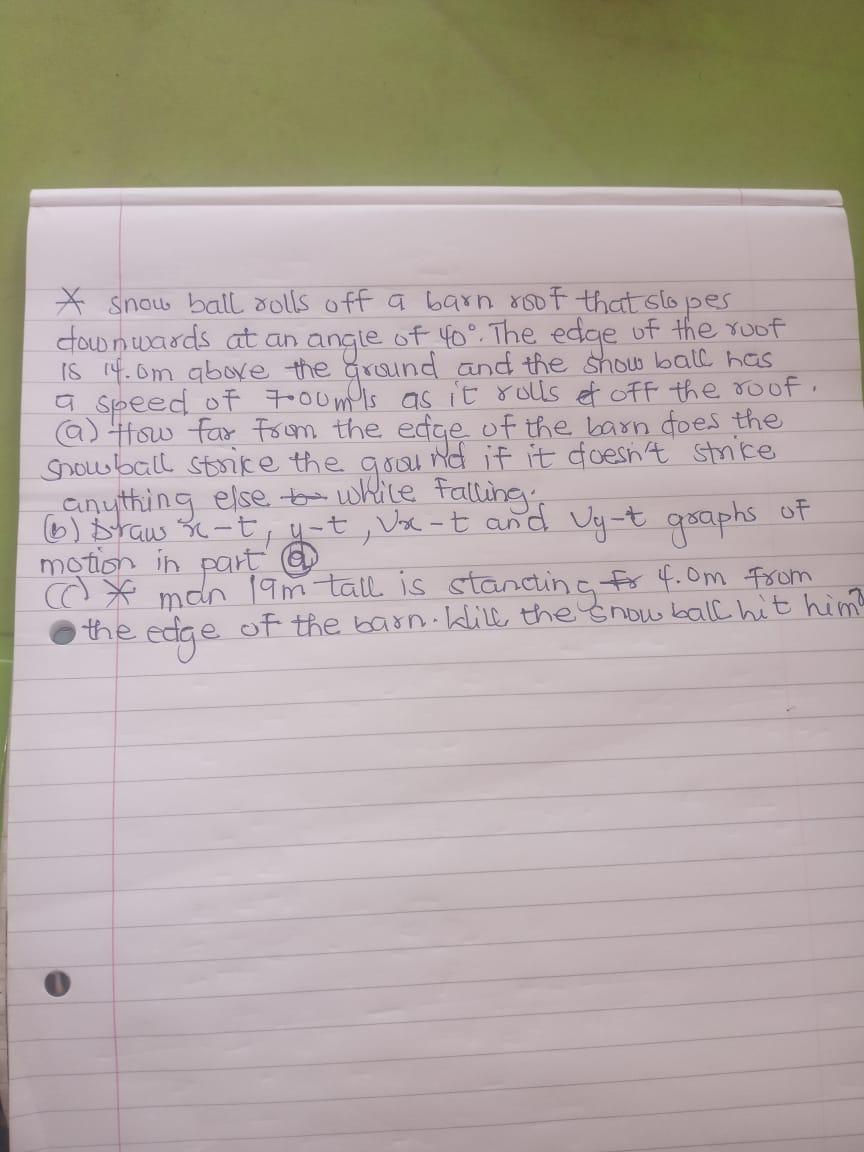 * snow ball rolls off a barn roof that slopes
downwards at an angle of 40°. The edge of the roof
is 14.0m above the ground and the snow ball has
a speed of 7.00m/s as it rolls off the roof.
(a) How far from the edge of the barn does the
snowball strike the ground if it doesn't strike
anything else while falling.
(b) Draw x-t, y-t, Vx-t and Vy-t graphs of
motion in part (a)
(c) * man 19m tall is standing 4.0m from
the edge of the barn. Will the snow ball hit him?